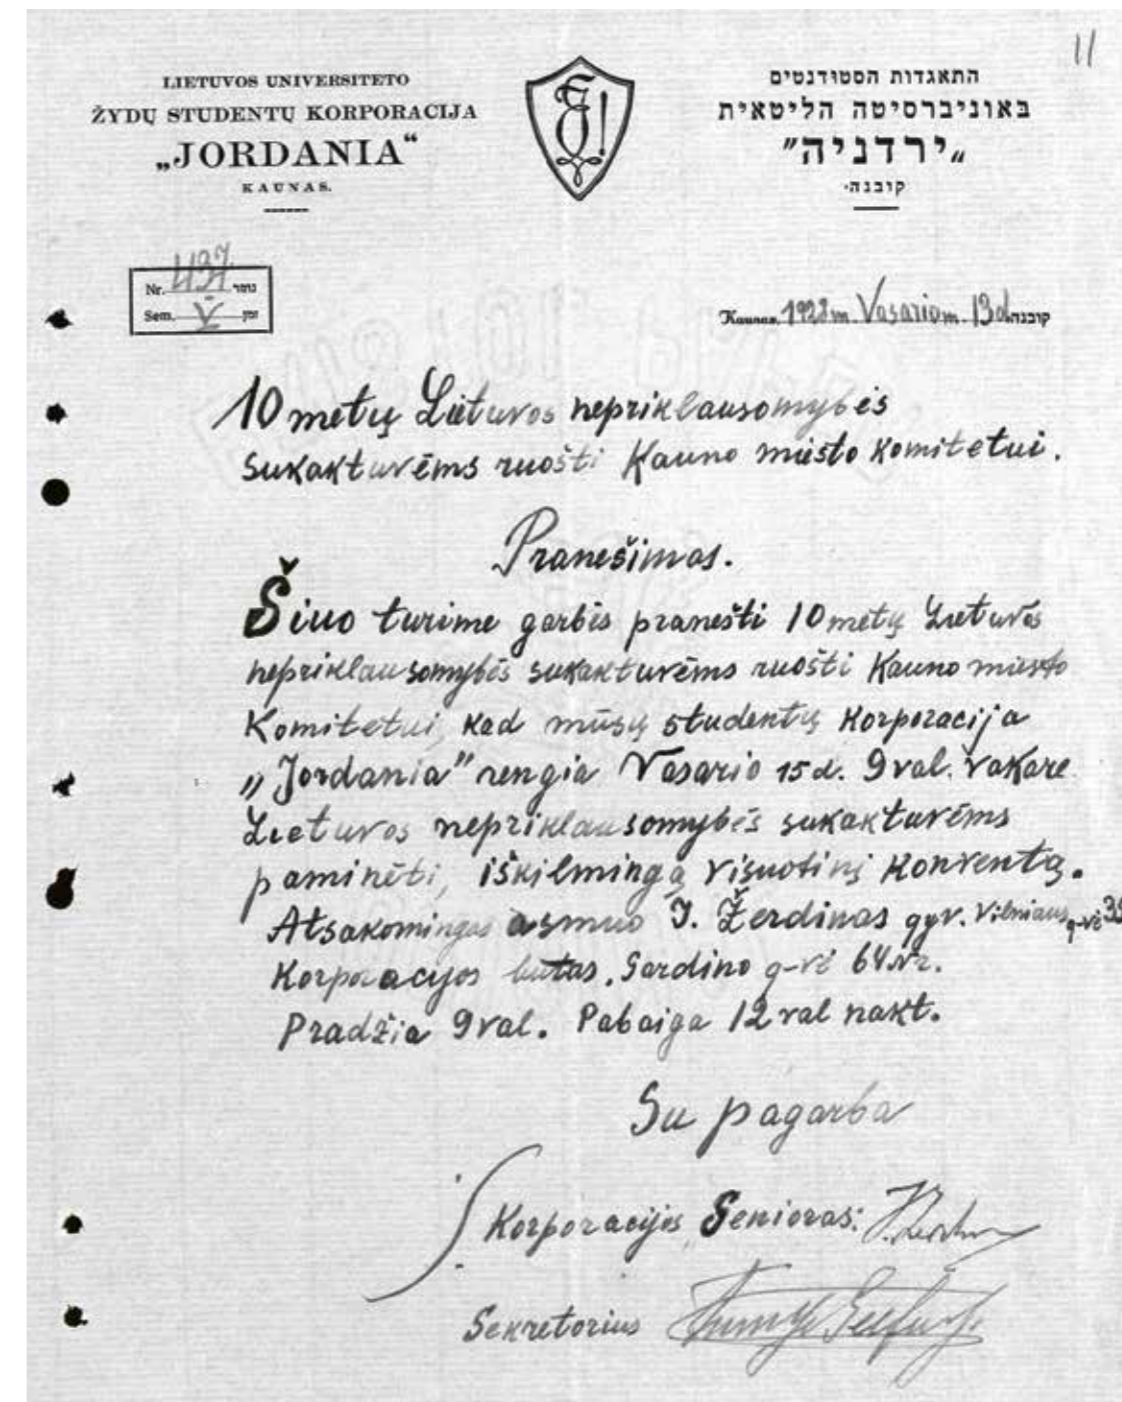 11
LIETUVOS UNIVERSITETO
ŽYDŲ STUDENTŲ KORPORACIJA
„JORDANIA“
KAUNAS.
התאגדות הסטודנטים
באוניברסיטה הליטאית
„ירדניה”
קובנה.
Nr. 437 נומר
Sem. V זמן
Kaunas, 1928 m. Vasario m. 13 d. קובנה
10 metų Lietuvos nepriklausomybės
sukaktuvėms ruošti Kauno miesto komitetui.
Pranešimas.
Šiuo turime garbės pranešti 10 metų Lietuvos
nepriklausomybės sukaktuvėms ruošti Kauno miesto
Komitetui, kad mūsų studentų korporacija
„Jordania” rengia Vasario 15 d. 9 val. vakare
Lietuvos nepriklausomybės sukaktuvėms
paminėti, iškilmingą visuotinį konventą.
Atsakomingas asmuo J. Žerdinas gyv. Vilniaus g-vė 35
Korporacijos butas. Gardino g-vė 64 Nr.
Pradžia 9 val. Pabaiga 12 val nakt.
Su pagarba
Korporacijos Senioras:
Sekretorius